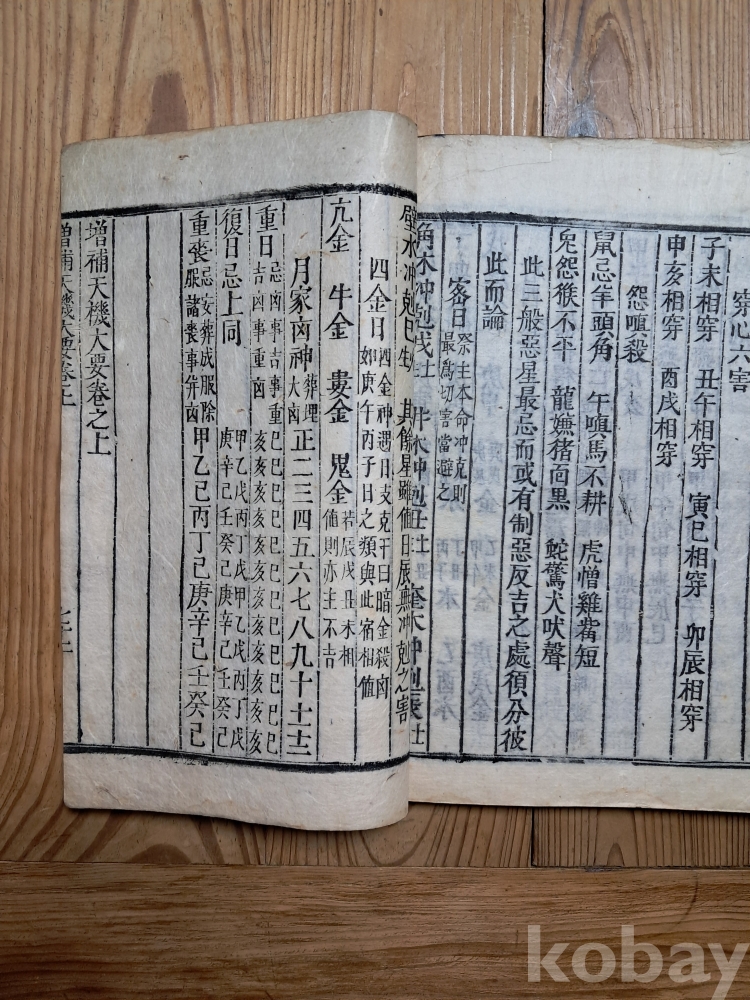 穿心六害
子未相穿 丑午相穿 寅巳相穿 卯辰相穿
申亥相穿 酉戌相穿
怨嗔殺
鼠忌羊頭角 午嗔馬不耕 虎憎雞嘴短
兔怨猴不平 龍嫌猪面黑 蛇驚犬吠聲
此三般惡星最忌而或有制惡反吉之處須分彼
此而論
密日 祭主本命冲克則
最爲切害當避之
角木冲剋戌
璧水冲剋巳生 其餘星雖値日辰無冲剋之害
四金日 四金神遇日支克干曰暗金殺凶
如庚午丙子日之類與此宿相値
亢金 牛金 婁金 鬼金 若辰戌丑未相
値則亦主不吉
月家凶神 葬埋
大凶 正二三四五六七八九十十一十二
重日 忌凶事重
吉凶事重凶 巳巳巳巳巳巳巳巳巳巳巳巳
亥亥亥亥亥亥亥亥亥亥亥亥
復日忌上同 甲乙戊丙丁戊甲乙戊丙丁戊
庚辛己壬癸己庚辛己壬癸己
重喪 忌安葬成服除
服諸喪事倂凶 甲乙己丙丁己庚辛己壬癸己
增補天機大要卷之上
增補天機大要卷上